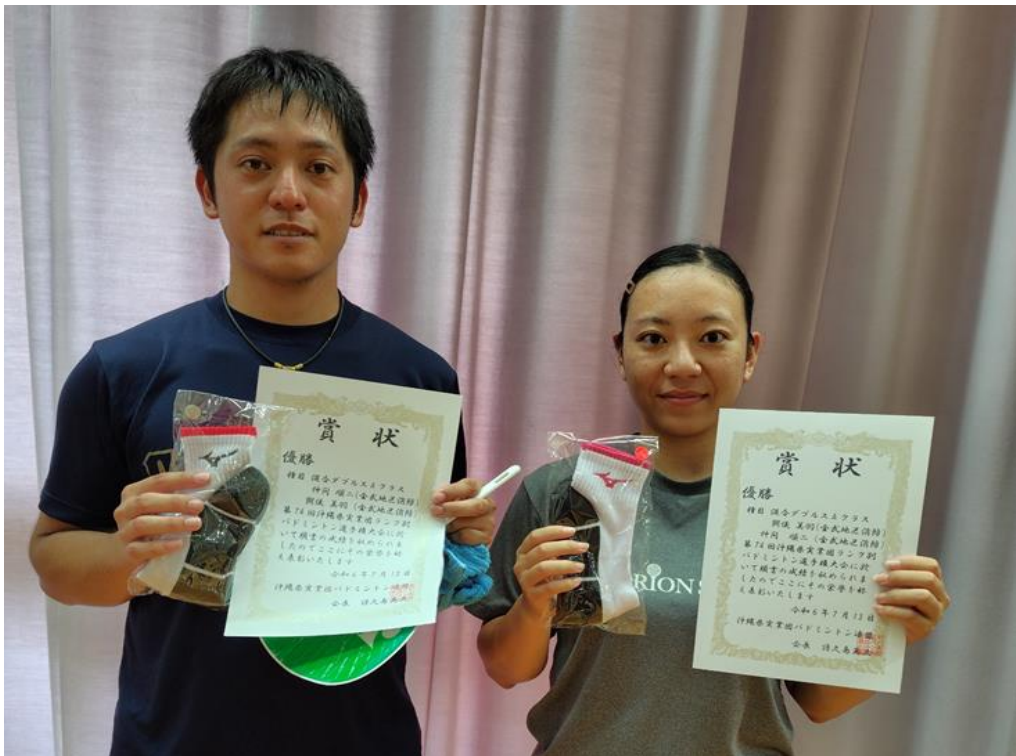 賞状
優勝
種目 混合ダブルスAクラス
仲間 順二(金武地区消防)
與儀 美羽(金武地区消防)
第74回沖縄県実業団ランク別
バドミントン選手権大会に於
いて頭書の成績を収められま
したのでここにその栄誉を称
え表彰いたします
令和6年7月13日
沖縄県実業団バドミントン連盟
会長
賞状
優勝
種目 混合ダブルスAクラス
與儀 美羽(金武地区消防)
仲間 順二(金武地区消防)
第74回沖縄県実業団ランク別
バドミントン選手権大会に於
いて頭書の成績を収められま
したのでここにその栄誉を称
え表彰いたします
令和6年7月13日
沖縄県実業団バドミントン連盟
会長
RION